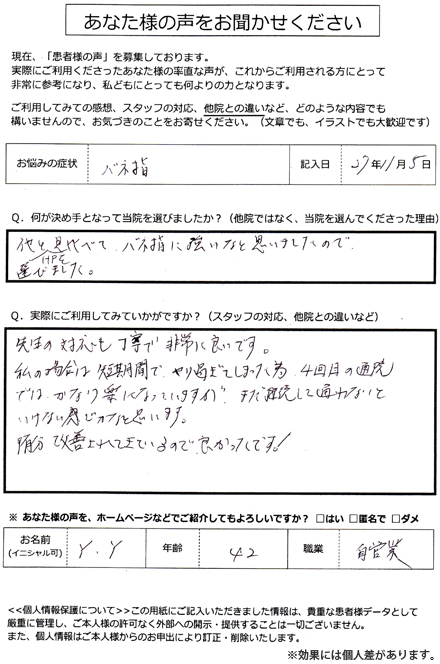 あなた様の声をお聞かせください
現在、「患者様の声」を募集しております。
実際にご利用くださったあなた様の率直な声が、これからご利用される方にとって
非常に参考になり、私どもにとっても何よりの力となります。
ご利用してみての感想、スタッフの対応、他院との違いなど、どのような内容でも
構いませんので、お気づきのことをお寄せください。（文章でも、イラストでも大歓迎です）
お悩みの症状 バネ指 記入日 27年11月5日
Q．何が決め手となって当院を選びましたか？（他院ではなく、当院を選んでくださった理由）
他と見比べて バネ指に強いなと思いましたので
HPを
選びました。
Q．実際にご利用してみていかがですか？（スタッフの対応、他院との違いなど）
先生の対応も丁寧で非常に良いです。
私の場合は短期間で、やり過ぎてしまった為、4回目の通院
では、かなり楽になっていますが、まだ継続して通わないと
いけない感じかなと思います。
随分改善されてきているので良かったです！
※ あなた様の声を、ホームページなどでご紹介してもよろしいですか？ □はい □匿名で □ダメ
お名前
（イニシャル可） Y．Y 年齢 42 職業 自営業
<<個人情報保護について>>この用紙にご記入いただきました情報は、貴重な患者様データとして
厳重に管理し、ご本人様の許可なく外部への開示・提供することは一切ございません。
また、個人情報はご本人様からのお申出により訂正・削除いたします。
※効果には個人差があります。